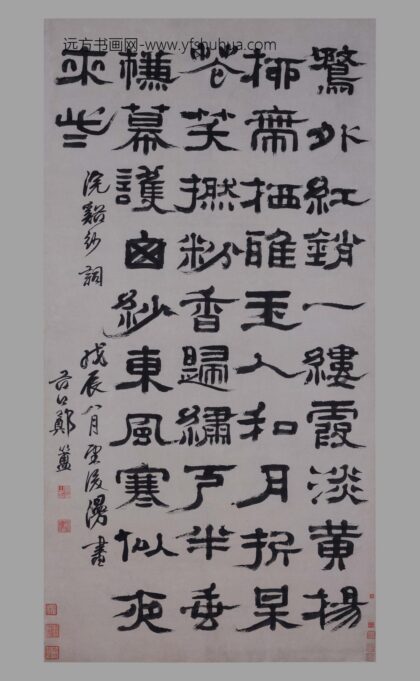 远方书画网-www.yfshuhua.com
鶩外紅銷一縷霞淡黃楊
桺帶栖鴉玉人和月折某
花笑撚粉香歸繡戶半垂
幕護窗紗東風寒似夜
來些
浣谿紗詞
戊辰八月望後漫書
谷口鄭簠